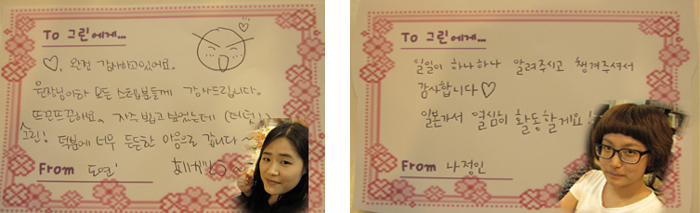 To 그린에게...
♡, 완전 감사하고있어요.
원장님이랑 모든 스텝분들께 감사드립니다.
뜨끈뜨끈해요. 자주 뵙고 싶었는데
그린! 덕분에 너무 든든한 마음으로 갑니다~
From 도연'
To 그린에게...
일일이 하나하나 알려주시고 챙겨주셔서
감사합니다♡
일본가서 열심히 활동할게요
From 나정인